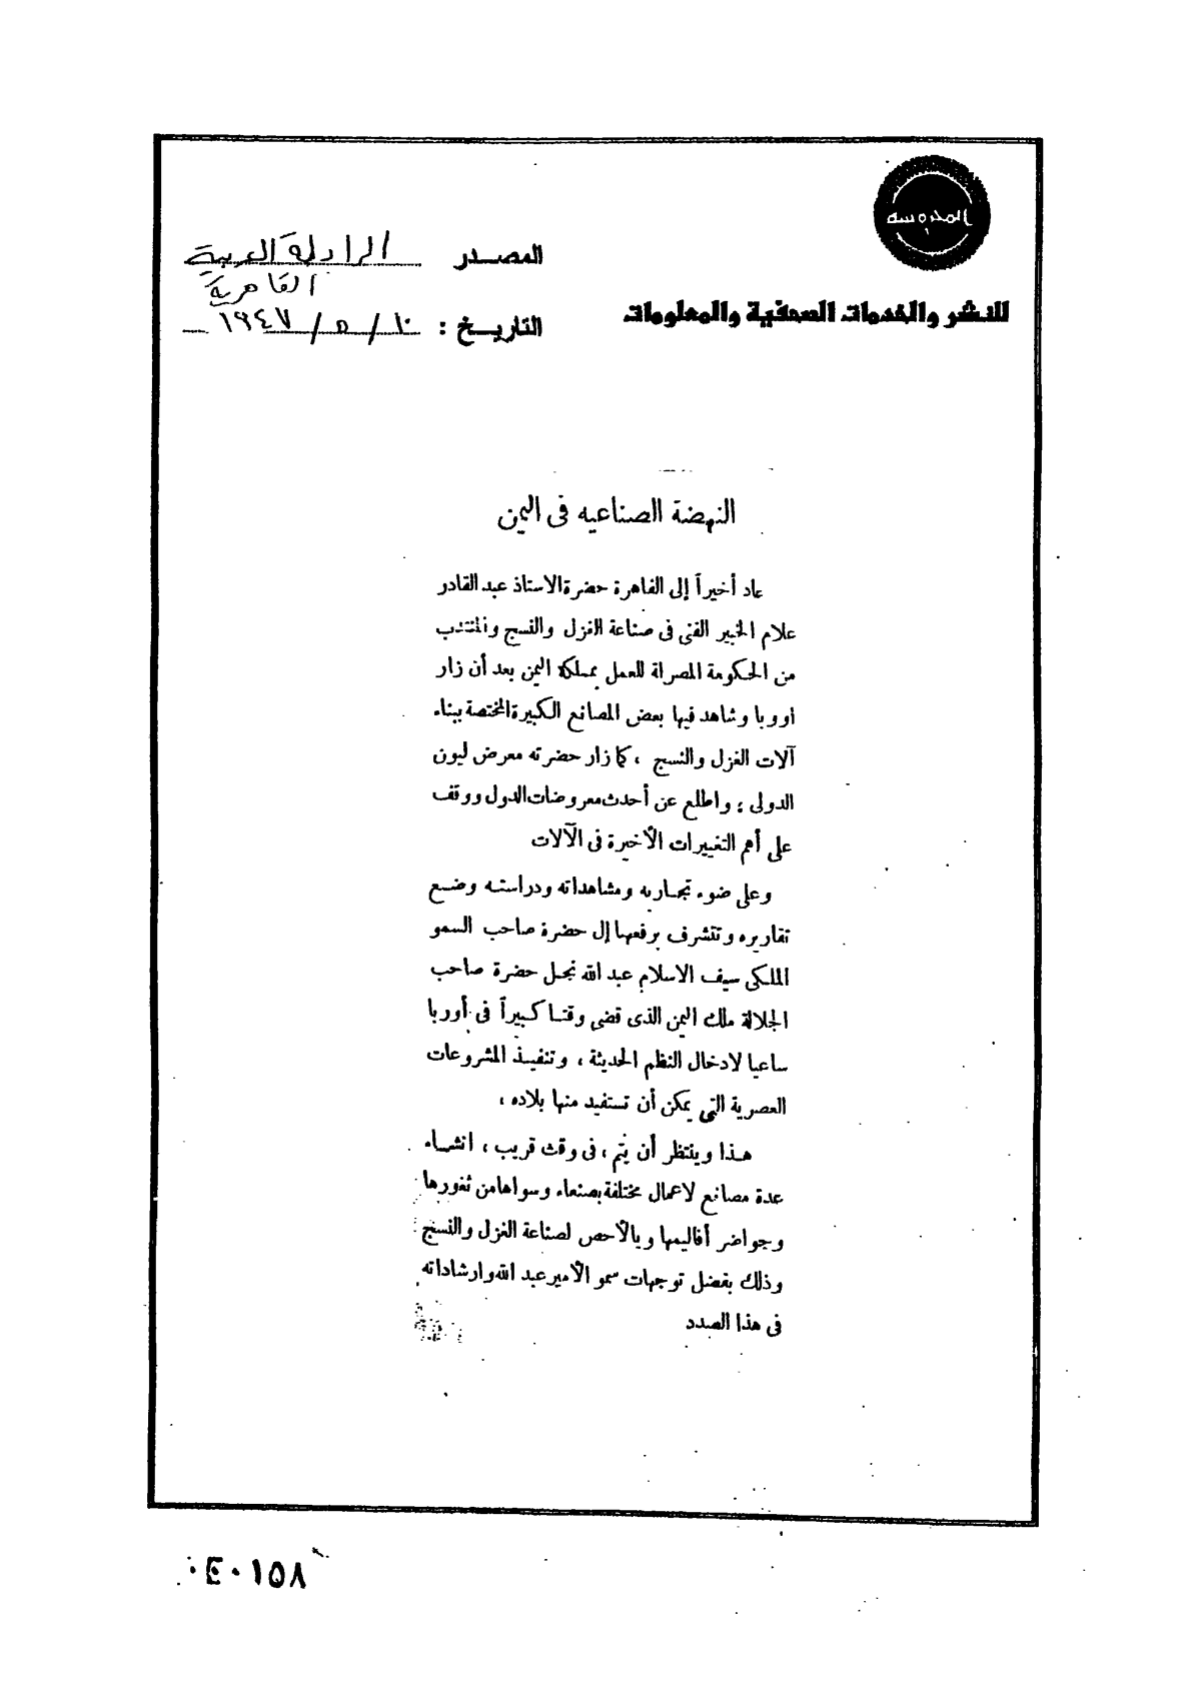 المحروسة
للنشر والخدمات الصحفية والمعلومات
المصدر الرابطة العربية
القاهرية
التاريخ : ١٠ / ٥ / ١٩٤٧
النهضة الصناعيه فى اليمن
عاد أخيراً إلى القاهرة حضرة الاستاذ عبد القادر
علام الخبير الفنى فى صناعة الغزل والنسج والمنتدب
من الحكومة المصراة للعمل بمملكة اليمن بعد أن زار
اوروبا وشاهد فيها بعض المصانع الكبيرة المختصة ببناء
آلات الغزل والنسج ، كما زار حضرته معرض ليون
الدولى ؛ واطلع عن أحدث معروضات الدول ووقف
على أهم التغييرات الأخيرة فى الآلات
وعلى ضوء تجاربه ومشاهداته ودراسته وضع
تقاريره وتتشرف برفعها إلى حضرة صاحب السمو
الملكى سيف الاسلام عبد الله نجل حضرة صاحب
الجلالة ملك اليمن الذى قضى وقتا كبيراً فى أوربا
ساعيا لادخال النظم الحديثة ، وتنفيذ المشروعات
العصرية التى يمكن أن تستفيد منها بلاده ،
هذا وينتظر أن يتم ، فى وقت قريب ، انشاء
عدة مصانع لاعمال مختلفة بصنعاء وسواها من ثغورها
وحواضر أقاليمها وبالأخص لصناعة الغزل والنسج
وذلك بفضل توجهات سمو الأمير عبد الله وارشاداته
فى هذا الصدد
٠٤٠١٥٨